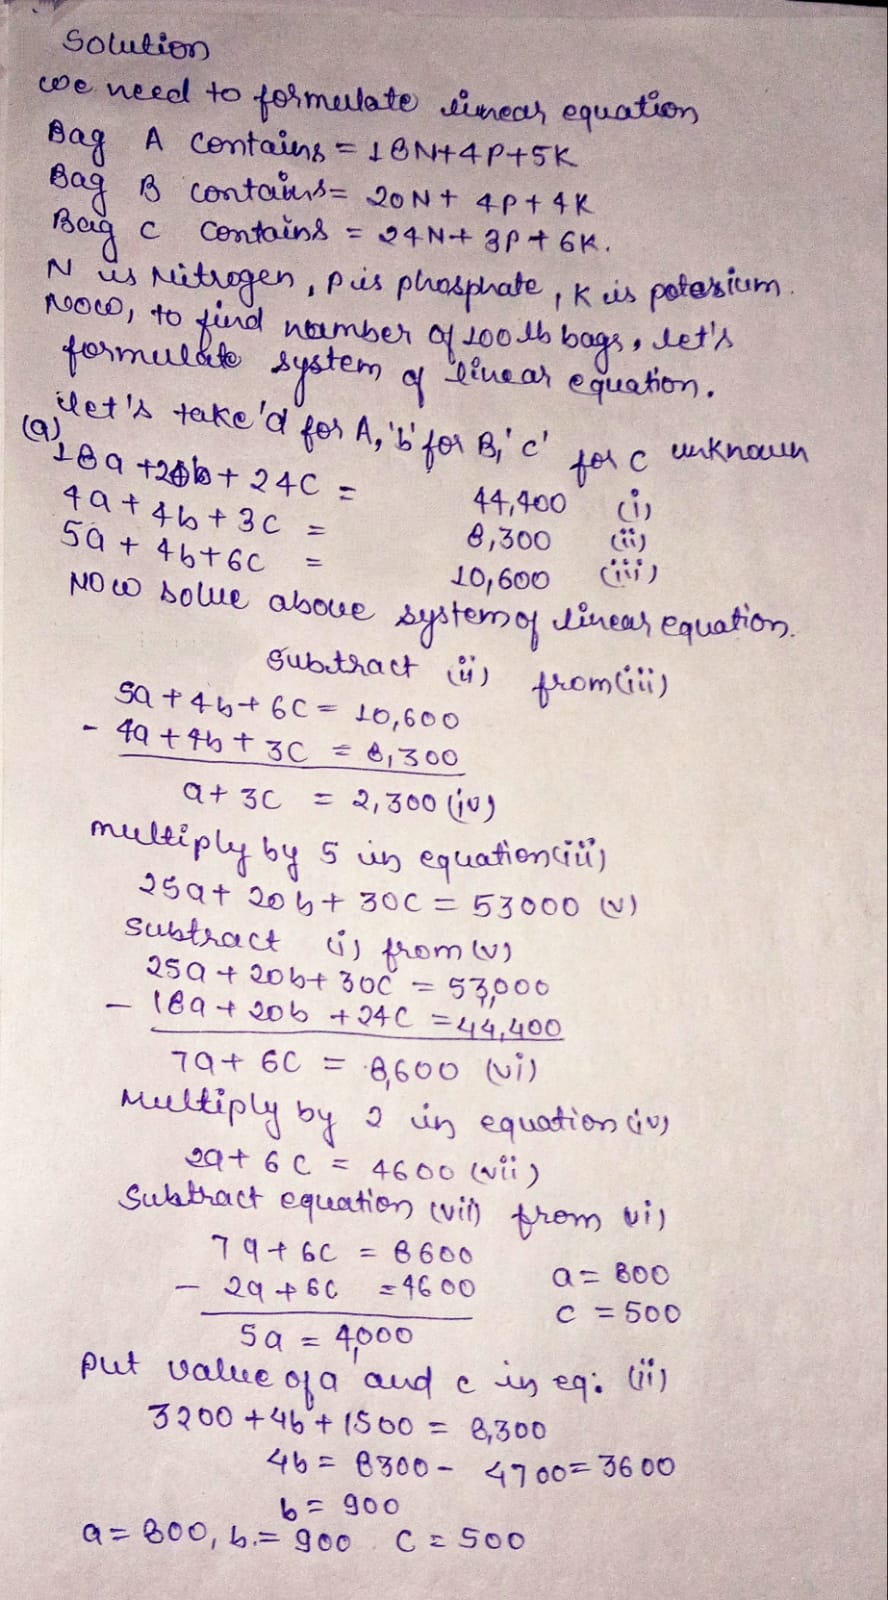 Solution
we need to formulate linear equation
Bag A contains = 18N+4P+5K
Bag B contains= 20N+ 4P+4K
Bag C contains = 24N+ 3P+6K.
N is Nitrogen, P is phosphate, K is potassium.
Now, to find number of 100 lb bags, let's
formulate system of linear equation.
let's take 'a' for A, 'b' for B, 'c' for C unknown
(a)
18a +20b+ 24C = 44,400 (i)
4a+ 4b+3C = 8,300 (ii)
5a+ 4b+6C = 10,600 (iii)
Now solve above system of linear equation.
Subtract (ii) from (iii)
5a+4b+6C = 10,600
- 4a+4b+3C = 8,300
a+ 3C = 2,300 (iv)
multiply by 5 in equation (iii)
25a+ 20b+ 30C = 53000 (v)
Subtract (i) from (v)
25a+20b+30C = 53,000
- 18a+ 20b +24C =44,400
7a+ 6C = 8,600 (vi)
Multiply by 2 in equation (iv)
2a+ 6C = 4600 (vii)
Subtract equation (vii) from vi)
7a+6C = 8600
- 2a+6C =4600
5a = 4,000
a= 800
C = 500
Put value of a and c in eq: (ii)
3200+4b+1500 = 8,300
4b= 8300- 4700=3600
b= 900
a= 800, b.= 900 C = 500